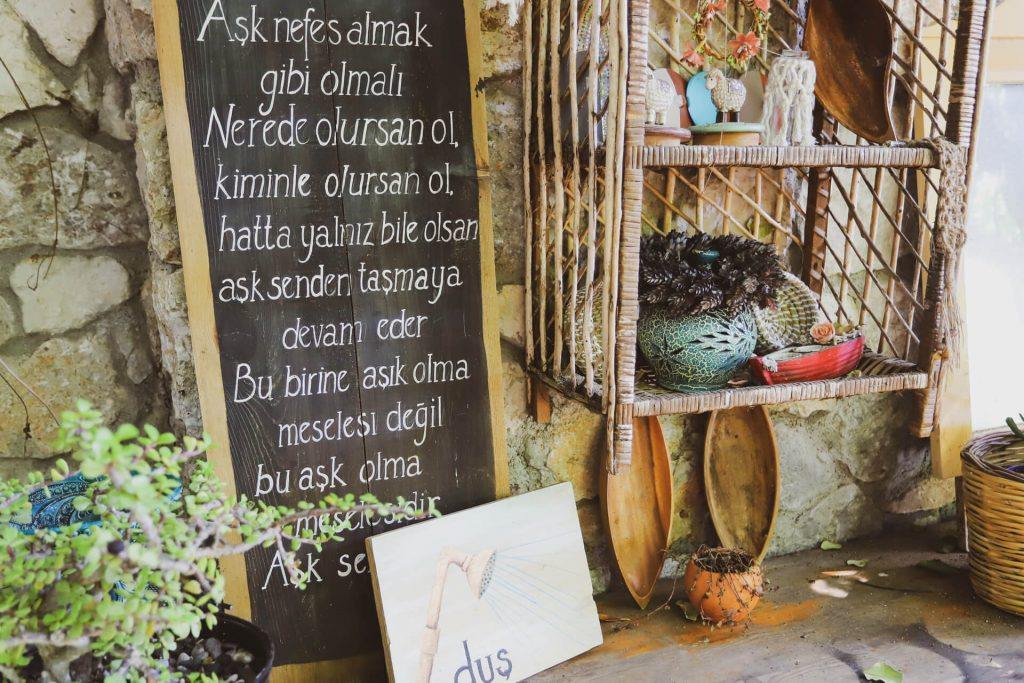 Aşk nefes almak
gibi olmalı
Nerede olursan ol,
kiminle olursan ol,
hatta yalnız bile olsan
aşk senden taşmaya
devam eder
Bu birine aşık olma
meselesi değil
bu aşk olma
meselesidir
Aşk
duş